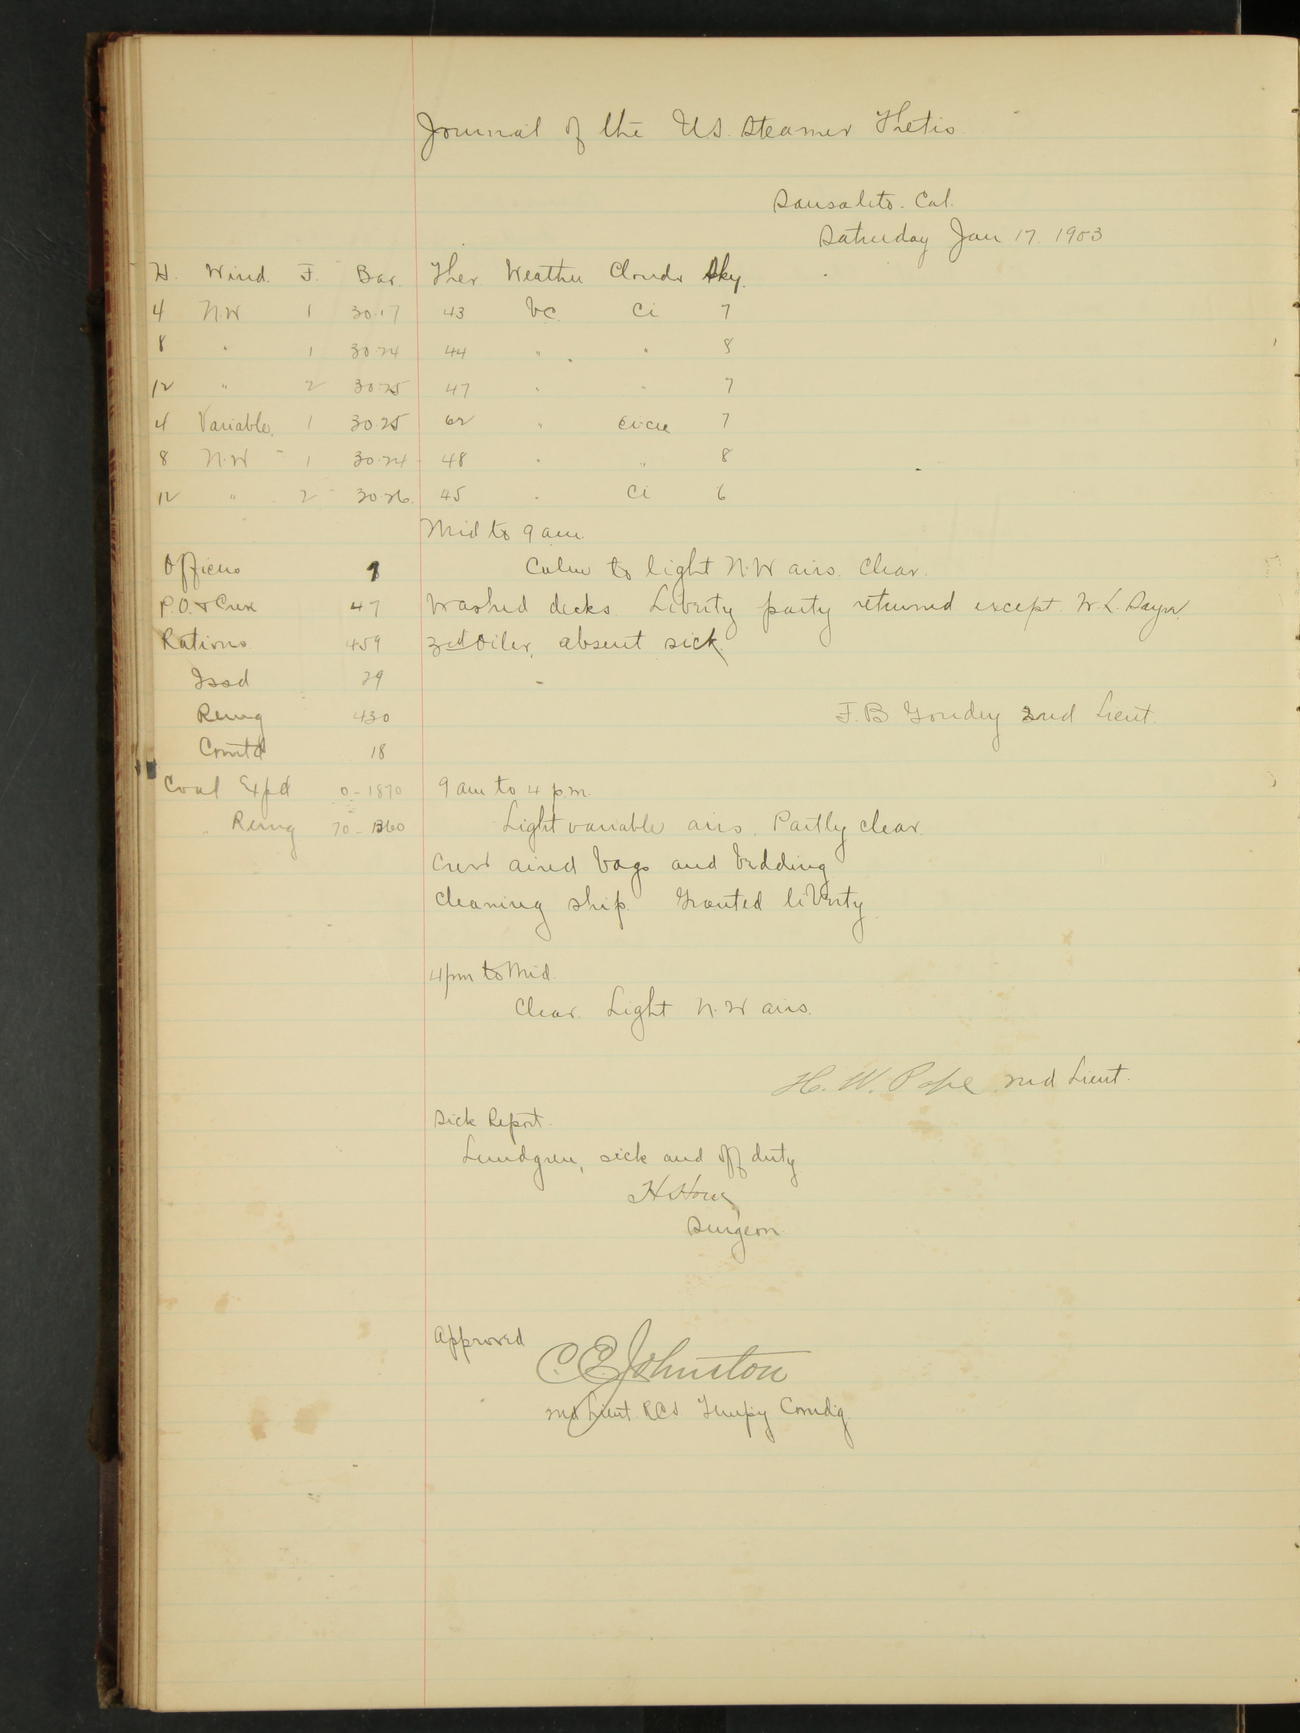 Journal of the U.S. Steamer Thetis
Sausalito. Cal.
Saturday Jan 17. 1903
H. Wind. F. Bar. Ther Weather Clouds Sky.
4 N.W 1 30.17 43 bc. Ci 7
8 " 1 30.24 44 " " 8
12 " 2 30.25 47 " " 7
4 Variable. 1 30.25 62 " Ci-cu 7
8 N.W 1 30.24 48 " " 8
12 " 2 30.26. 45 " Ci 6
Mid to 9 am.
Officers 9 Calm to light N.W airs. Clear.
P.O. & Crew 47 Washed decks. Liberty party returned except W. L.
Rations 459 3rd Oiler, absent sick.
Issd 29
Remg 430 F. B. Goudey 2nd Lieut.
Comtd 18
Coal Expd 0-1870 9 am to 4 p.m.
" Remg 70- Light variable airs. Partly clear.
Crew aired bags and bedding
Cleaning ship. Granted liberty.
4 pm to Mid.
Clear. Light N.W airs.
H. W. Pope 2nd Lieut.
Sick Report.
Lundgren, sick and off duty
Surgeon
Approved
C. E. Johnston
2nd Lieut. RCS Tempy Comdg